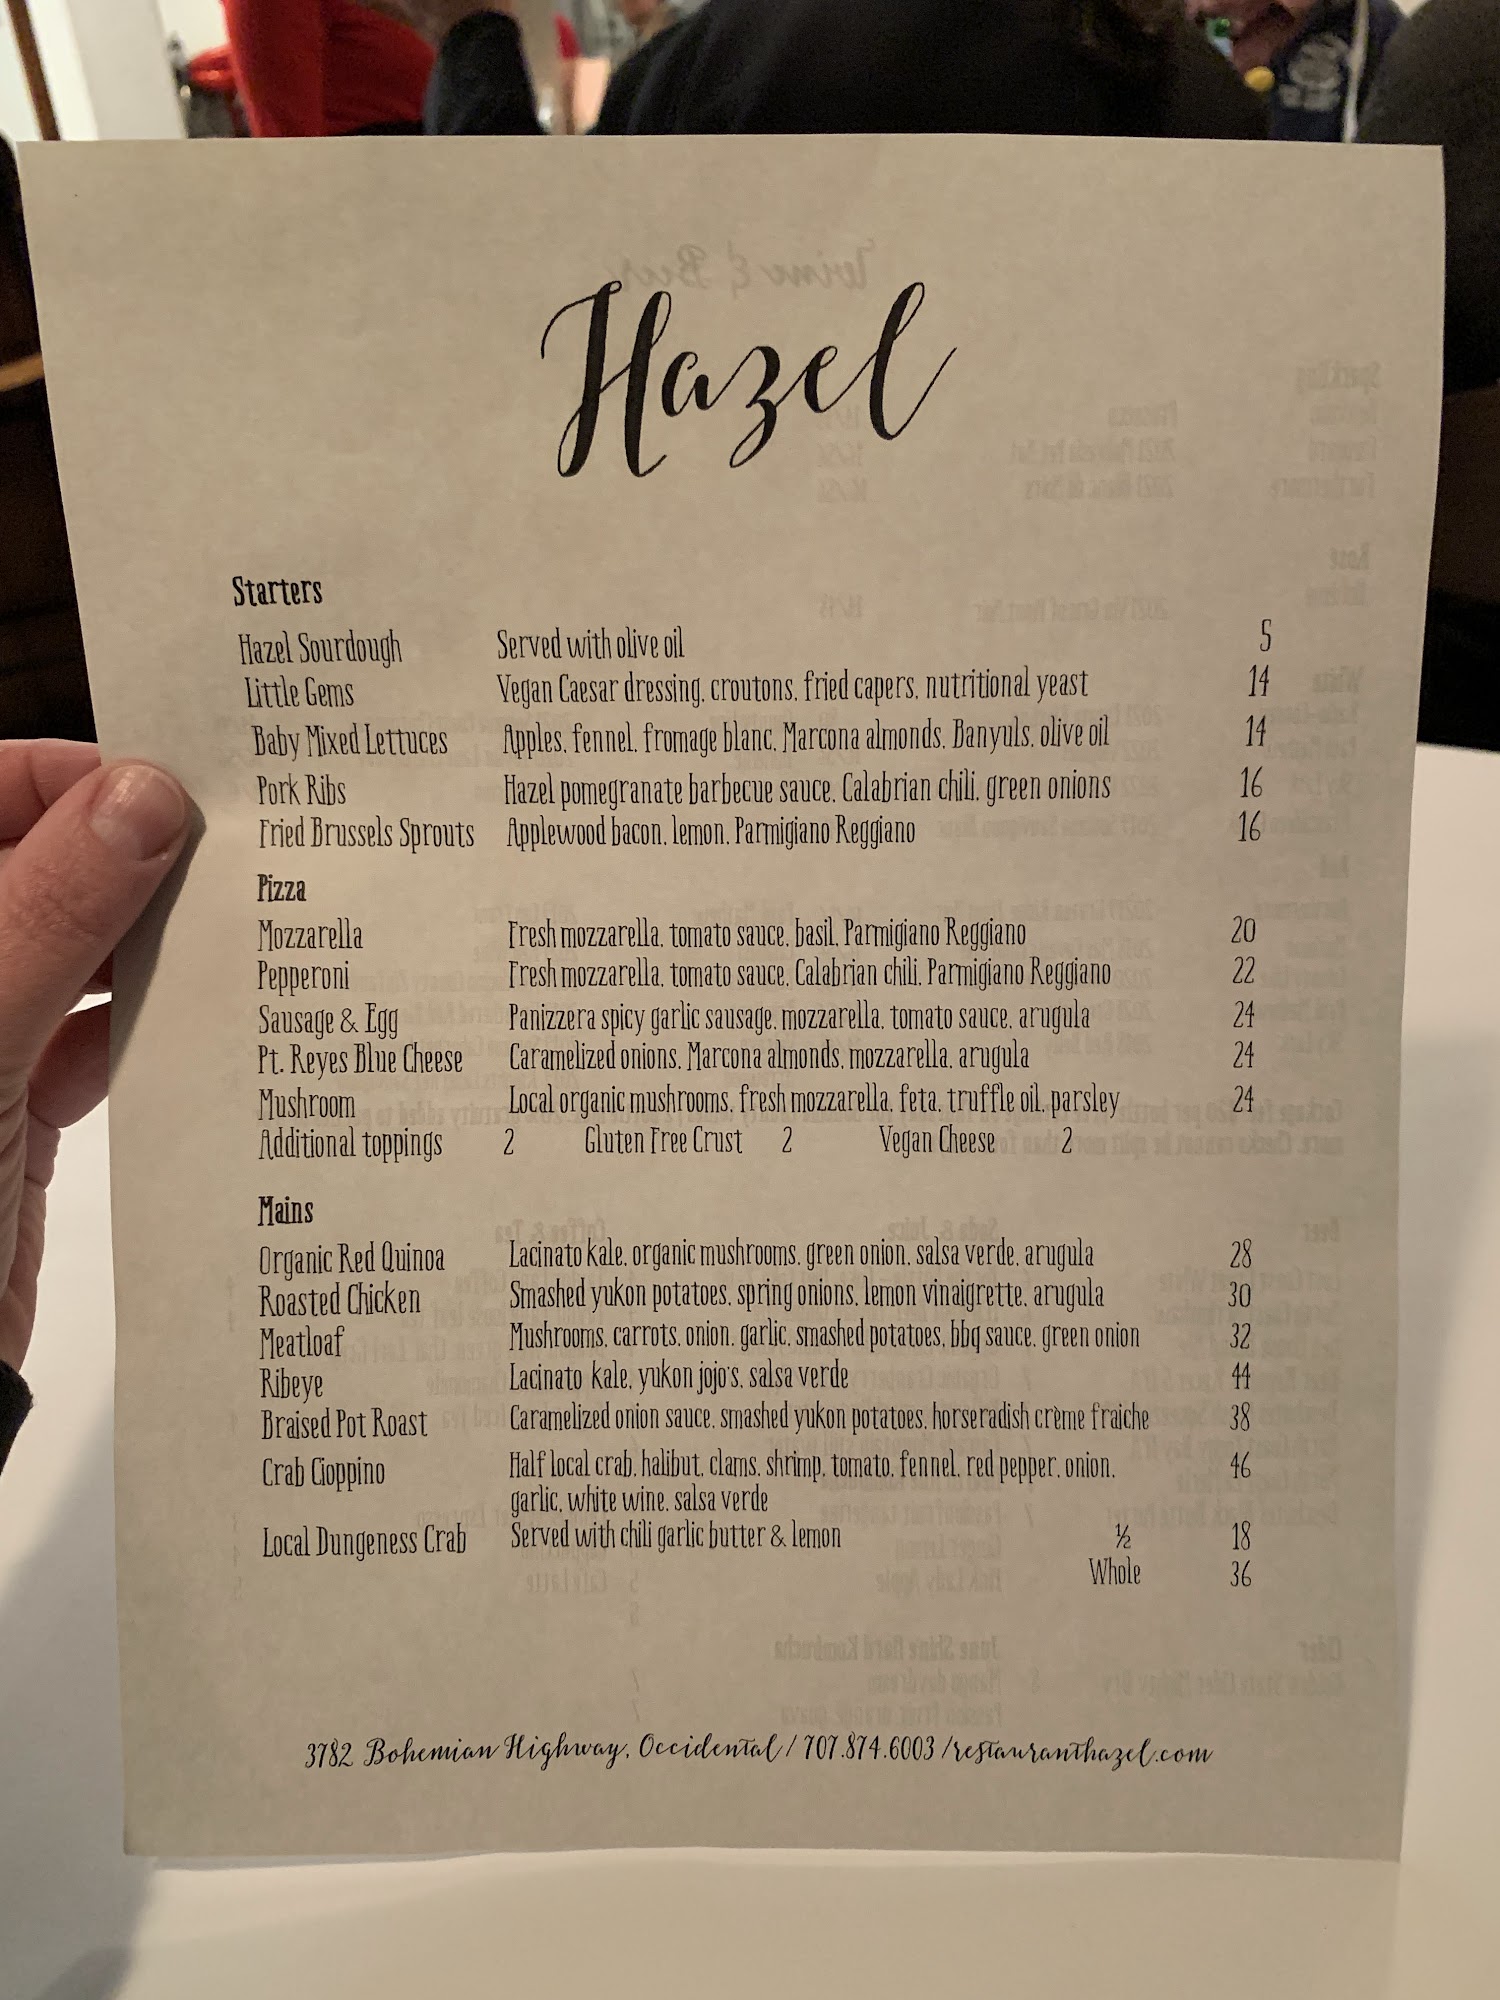 Hazel
Starters
Hazel Sourdough Served with olive oil 5
Little Gems Vegan Caesar dressing, croutons, fried capers, nutritional yeast 14
Baby Mixed Lettuces Apples, fennel, fromage blanc, Marcona almonds, Banyuls, olive oil 14
Pork Ribs Hazel pomegranate barbecue sauce, Calabrian chili, green onions 16
Fried Brussels Sprouts Applewood bacon, lemon, Parmigiano Reggiano 16
Pizza
Mozzarella Fresh mozzarella, tomato sauce, basil, Parmigiano Reggiano 20
Pepperoni Fresh mozzarella, tomato sauce, Calabrian chili, Parmigiano Reggiano 22
Sausage & Egg Panizzera spicy garlic sausage, mozzarella, tomato sauce, arugula 24
Pt. Reyes Blue Cheese Caramelized onions, Marcona almonds, mozzarella, arugula 24
Mushroom Local organic mushrooms, fresh mozzarella, feta, truffle oil, parsley 24
Additional toppings 2 Gluten Free Crust 2 Vegan Cheese 2
Mains
Organic Red Quinoa Lacinato kale, organic mushrooms, green onion, salsa verde, arugula 28
Roasted Chicken Smashed yukon potatoes, spring onions, lemon vinaigrette, arugula 30
Meatloaf Mushrooms, carrots, onion, garlic, smashed potatoes, bbq sauce, green onion 32
Ribeye Lacinato kale, yukon jojo's, salsa verde 44
Braised Pot Roast Caramelized onion sauce, smashed yukon potatoes, horseradish crème fraiche 38
Crab Cioppino Half local crab, halibut, clams, shrimp, tomato, fennel, red pepper, onion, 46
garlic, white wine, salsa verde
Local Dungeness Crab Served with chili garlic butter & lemon ½ 18
Whole 36
3782 Bohemian Highway, Occidental / 707.874.6003 / restauranthazel.com